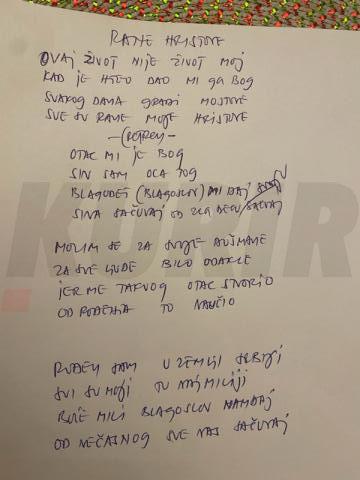 RANE HRISTOVE
OVAJ ŽIVOT NIJE ŽIVOT MOJ
KAD JE HTEO DAO MI GA BOG
SVAKOG DANA GRADI MOSTOVE
SVE SU RANE MOJE HRISTOVE
-(REFREN)-
OTAC MI JE BOG
SIN SAM OCA TOG
BLAGODET (BLAGOSLOV) MI DAJ
SINA SAČUVAJ OD ZLA
MOLIM SE ZA SVOJE DUŠMANE
ZA SVE LJUDE BILO ODAKLE
JER ME TAKVOG OTAC STVORIO
OD ROĐENJA TO NAUČIO
ROĐEN SAM U ZEMLJI SRBIJI
SVI SU MOJI SU NAJMILIJI
BOŽE MILI BLAGOSLOV NAM DAJ
OD NEČASNOG SVE NAS SAČUVAJ
KURIR